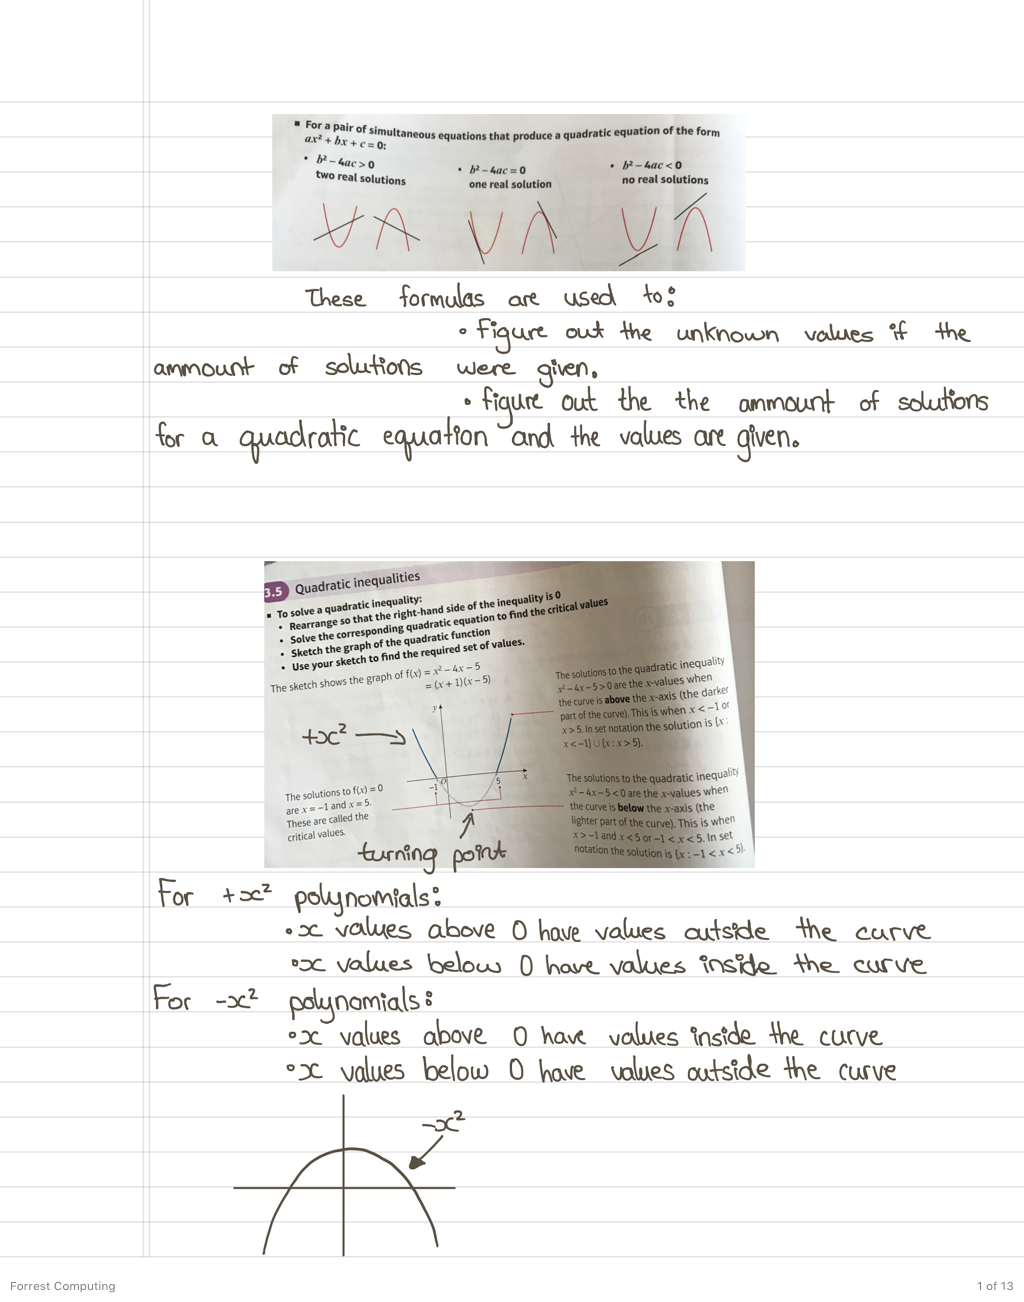 ▪ For a pair of simultaneous equations that produce a quadratic equation of the form
ax² + bx + c = 0:
• b² – 4ac > 0
two real solutions
• b² – 4ac = 0
one real solution
• b² – 4ac < 0
no real solutions
These formulas are used to:
• Figure out the unknown values if the
ammount of solutions were given.
• figure out the the ammount of solutions
for a quadratic equation and the values are given.
3.5 Quadratic inequalities
▪ To solve a quadratic inequality:
• Rearrange so that the right-hand side of the inequality is 0
• Solve the corresponding quadratic equation to find the critical values
• Sketch the graph of the quadratic function
• Use your sketch to find the required set of values.
The sketch shows the graph of f(x) = x² – 4x – 5
= (x + 1)(x – 5)
The solutions to the quadratic inequality
x² – 4x – 5 > 0 are the x-values when
the curve is above the x-axis (the darker
part of the curve). This is when x < –1 or
x > 5. In set notation the solution is {x :
x < –1} ∪ {x : x > 5}.
+x²
y
–1
O
5
x
The solutions to f(x) = 0
are x = –1 and x = 5.
These are called the
critical values.
The solutions to the quadratic inequality
x² – 4x – 5 < 0 are the x-values when
the curve is below the x-axis (the
lighter part of the curve). This is when
x > –1 and x < 5 or –1 < x < 5. In set
notation the solution is {x : –1 < x < 5}.
turning point
For +x² polynomials:
• x values above 0 have values outside the curve
• x values below 0 have values inside the curve
For -x² polynomials:
• x values above 0 have values inside the curve
• x values below 0 have values outside the curve
-x²
Forrest Computing
1 of 13